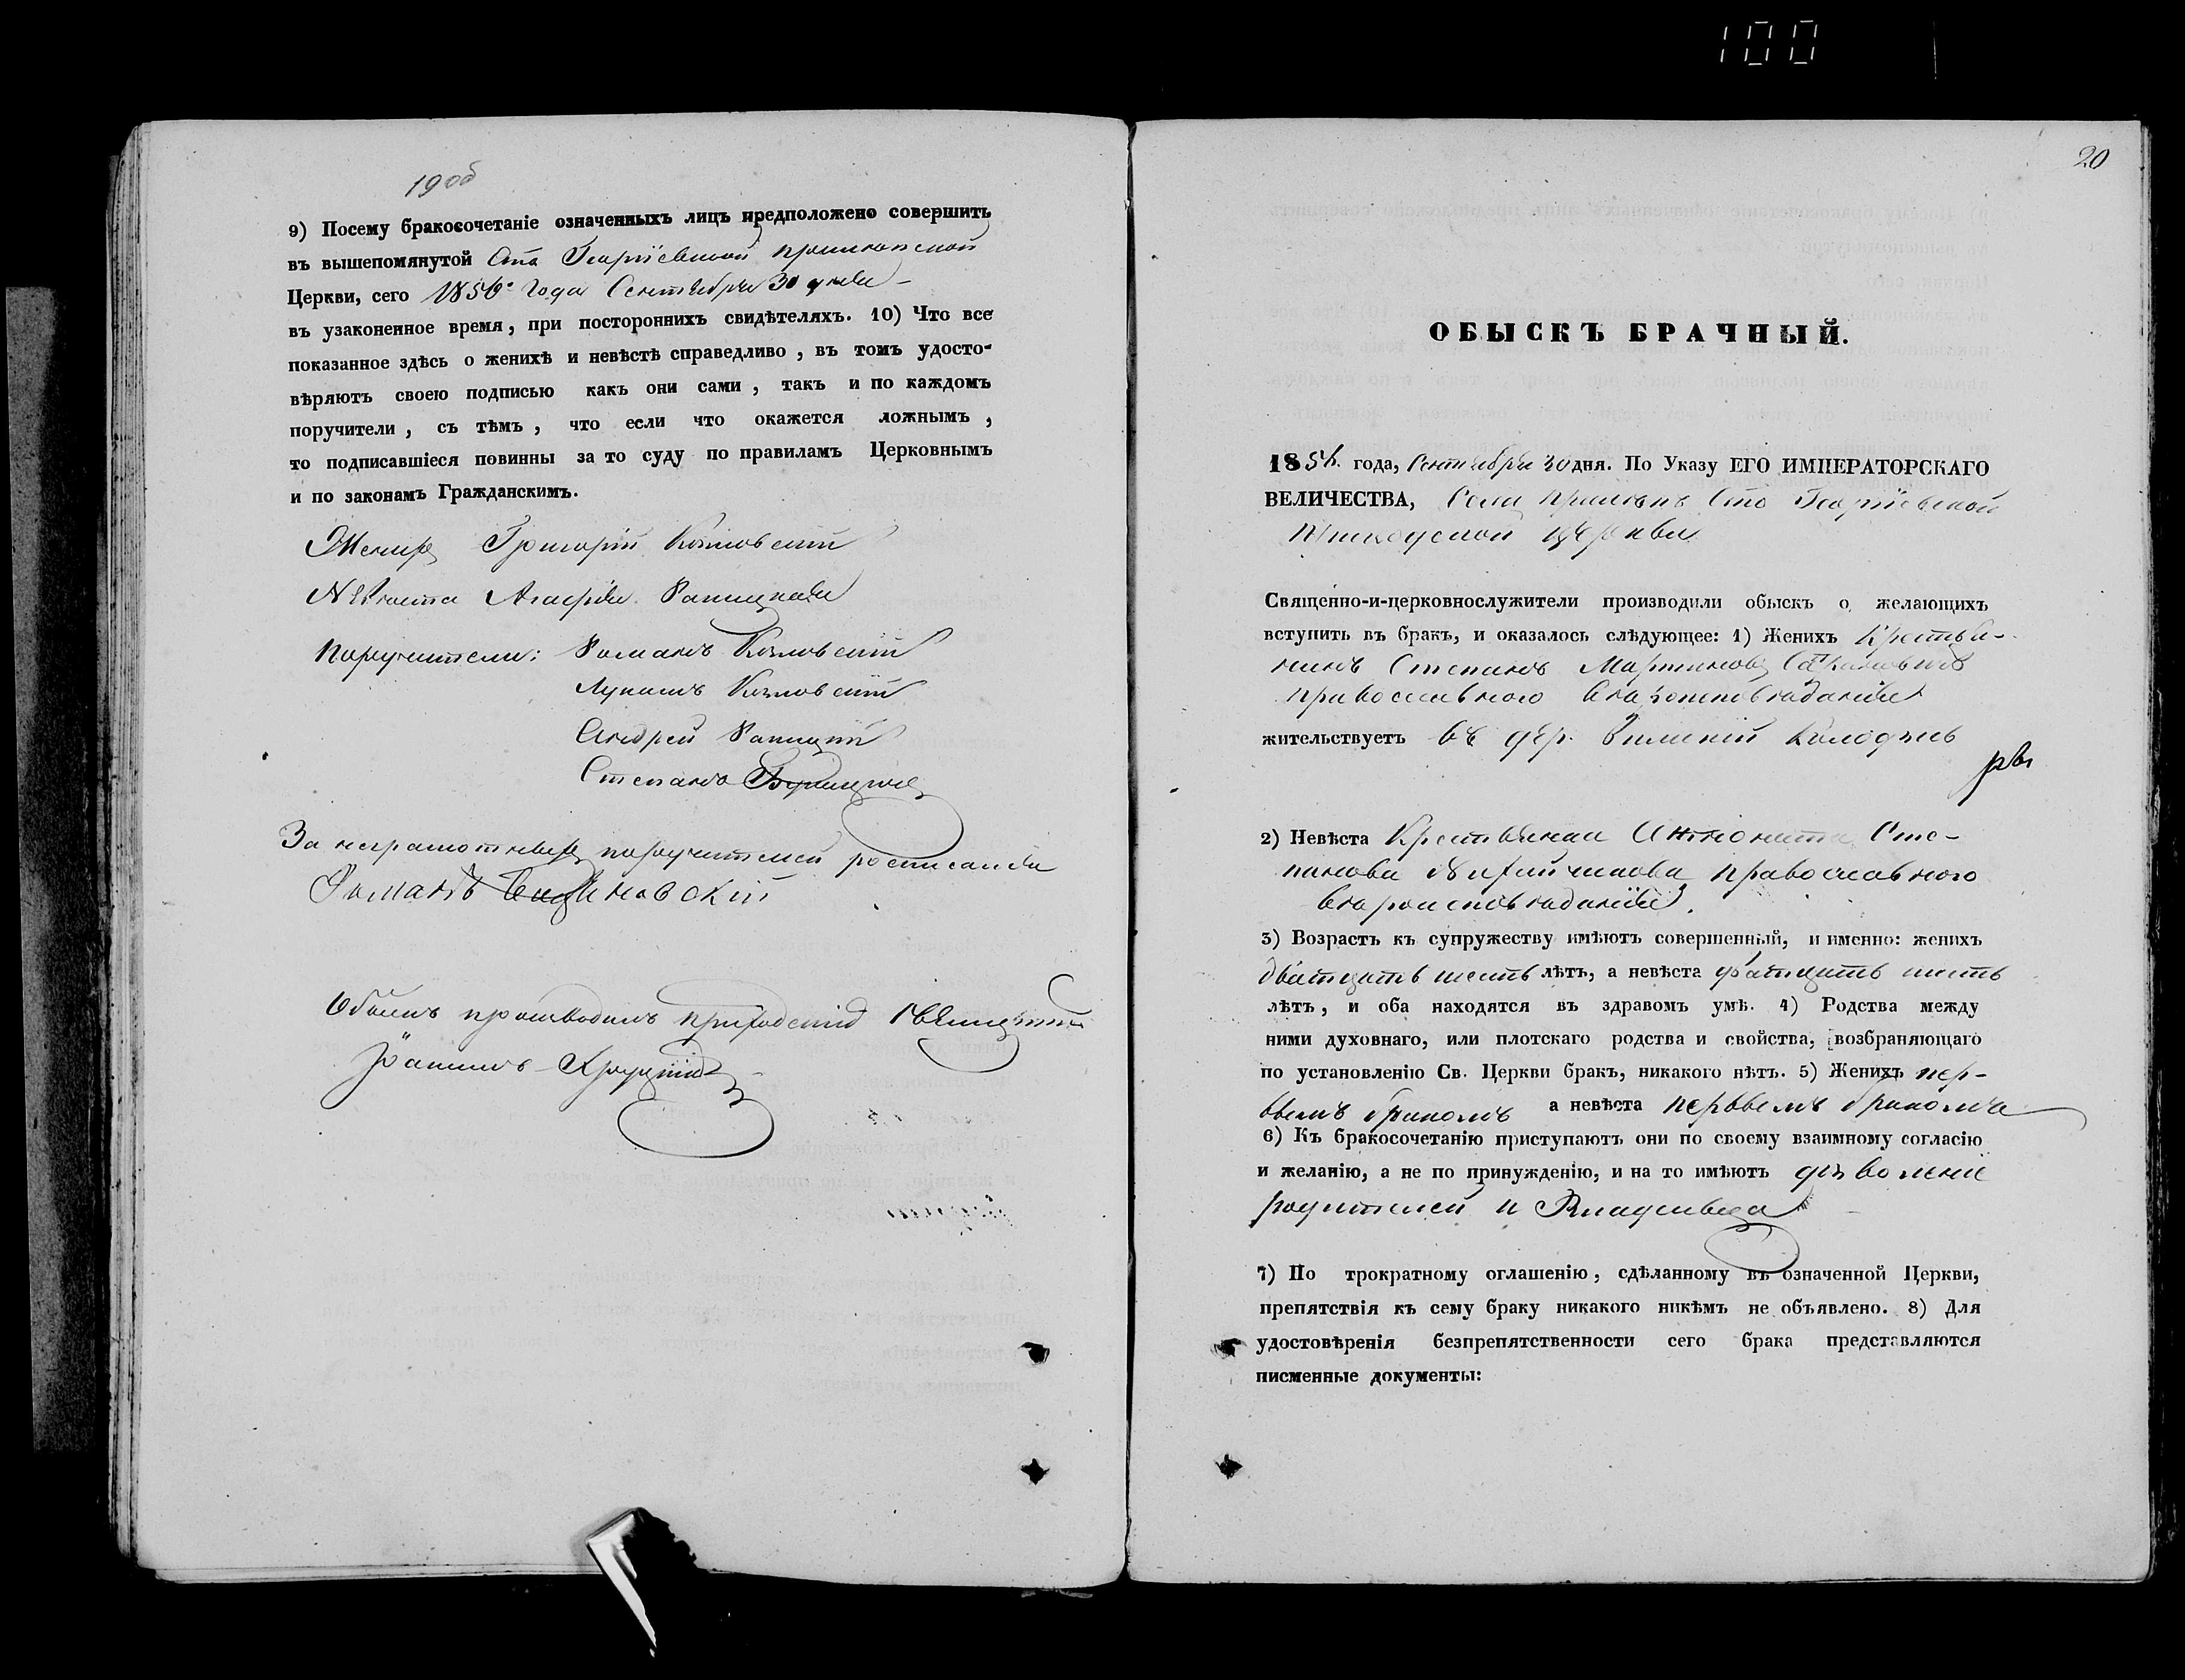 100
19 об
9) Посему бракосочетаніе означенныхъ лицъ предположено совершить
въ вышепомянутой Сто Георгіевской
Церкви, сего 1856 года Сентября 30 дня
въ узаконенное время, при постороннихъ свидѣтеляхъ. 10) Что все
показанное здѣсь о женихѣ и невѣстѣ справедливо, въ томъ удосто-
вѣряютъ своею подписью какъ они сами, такъ и по каждомъ
поручители, съ тѣмъ, что если что окажется ложнымъ,
то подписавшіеся повинны за то суду по правиламъ Церковнымъ
и по законамъ Гражданскимъ.
Женихъ Григорій Козловскій
Невѣста Агафія
Поручители: Романъ Козловскій
Лукашъ Козловскій
Андрей
Степанъ
За неграмотныхъ поручителей росписался
Романъ
Обыскъ производилъ приходскій священникъ
Іоаннъ Хруцкій
20
ОБЫСКЪ БРАЧНЫЙ.
1856. года, Сентября 30 дня. По Указу ЕГО ИМПЕРАТОРСКАГО
ВЕЛИЧЕСТВА, Села Сто Георгіевской
приходской церкви
Священно-и-церковнослужители производили обыскъ о желающихъ
вступить въ бракъ, и оказалось слѣдующее: 1) Женихъ Крестья-
нинъ Степанъ Мартиновъ
православного вѣроисповѣданія
жительствуетъ въ дер.
2) Невѣста Крестьянка Сте-
панова православного
вѣроисповѣданія.
3) Возрастъ къ супружеству имѣютъ совершенный, и именно: женихъ
дватцать шесть лѣтъ, а невѣста дватцать шесть
лѣтъ, и оба находятся въ здравомъ умѣ. 4) Родства между
ними духовнаго, или плотскаго родства и свойства, возбраняющаго
по установленію Св. Церкви бракъ, никакого нѣтъ. 5) Женихъ пер-
вымъ бракомъ а невѣста первымъ бракомъ
6) Къ бракосочетанію приступаютъ они по своему взаимному согласію
и желанію, а не по принужденію, и на то имѣютъ дозволеніе
родителей и Владельца
7) По трократному оглашенію, сдѣланному въ означенной Церкви,
препятствія къ сему браку никакого никѣмъ не объявлено. 8) Для
удостовѣренія безпрепятственности сего брака представляются
писменные документы: